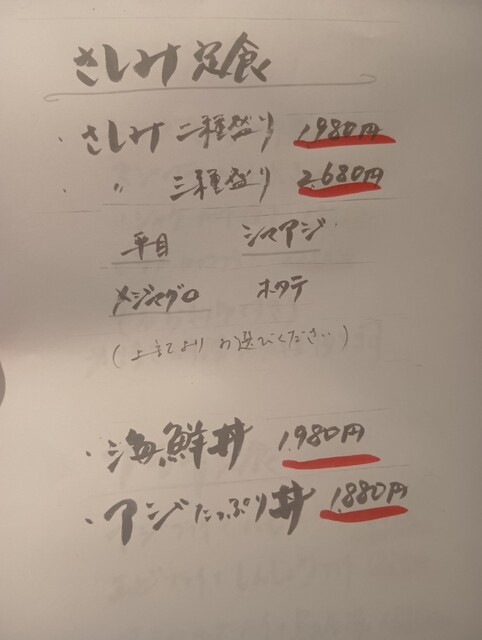 さしみ定食
・さしみ 二種盛り 1980円
・ 〃 三種盛り 2,680円
平目 シマアジ
メジマグロ ホタテ
(上記より お選びください)
・海鮮丼 1,980円
・アジたっぷり丼 1,880円